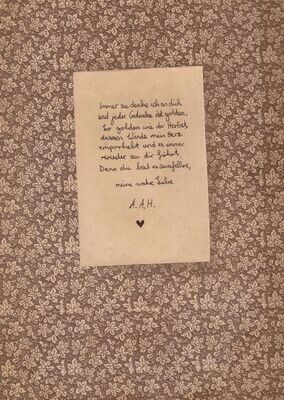 Immer zu denke ich an dich
und jeder Gedanke ist golden,
So golden wie der Herbst,
dessen Winde mein Herz
emporhebt und es immer
wieder zu dir führt.
Denn du bist es zweifellos,
meine wahre Liebe
A.A.H.